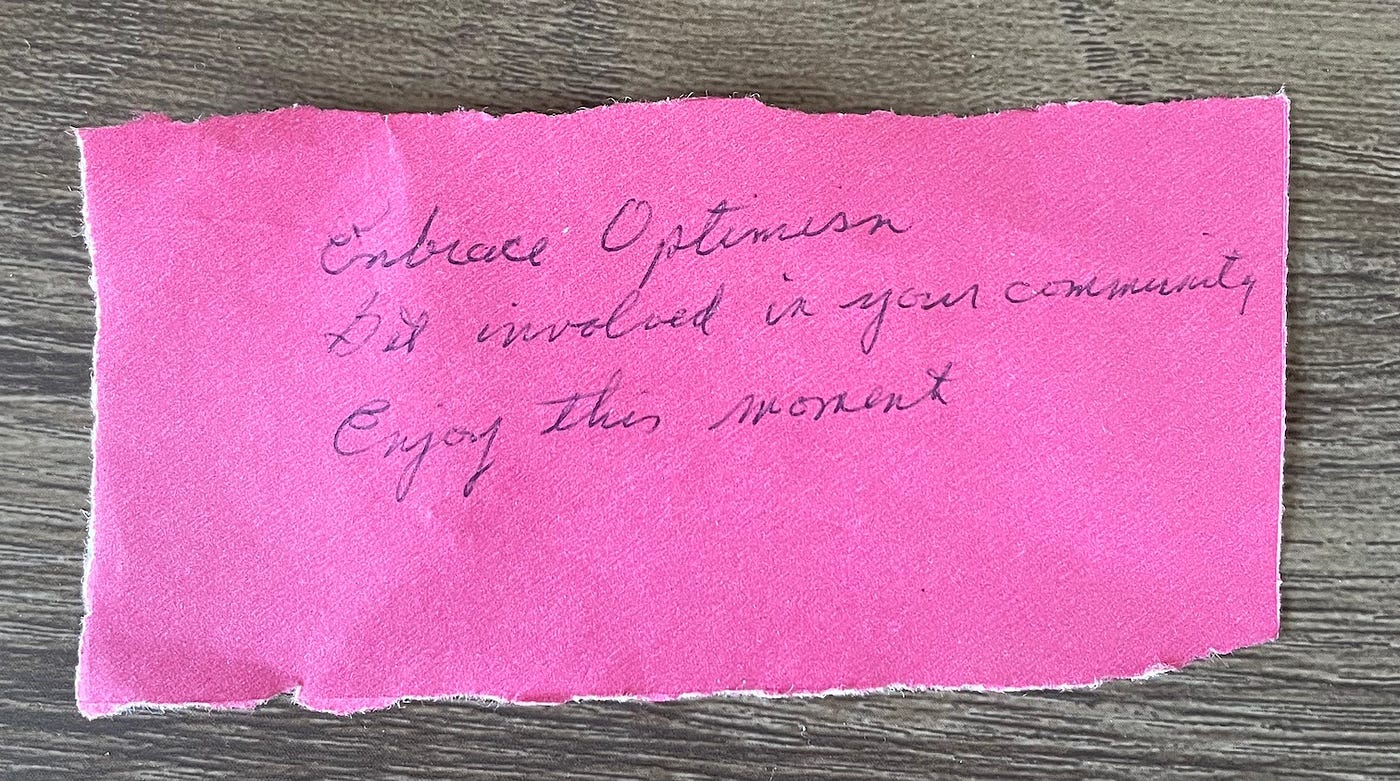 Embrace Optimism
Get involved in your community
Enjoy this moment